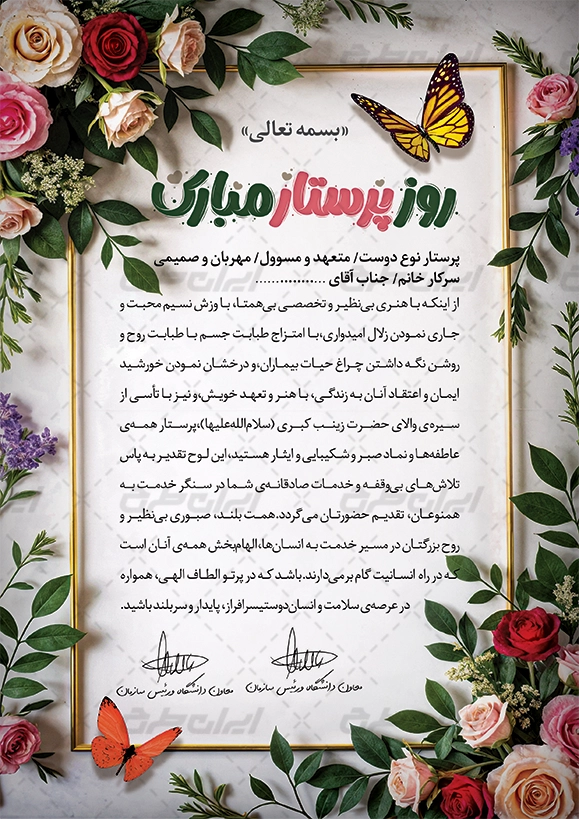 «بسمه تعالی»
روز پرستار مبارک
پرستار نوع دوست/ متعهد و مسوول/ مهربان و صمیمی
سرکار خانم/ جناب آقای ..................
از اینکه با هنری بی‌نظیر و تخصصی بی‌همتا، با وزش نسیم محبت و
جاری نمودن زلال امیدواری،با امتزاج طبابت جسم با طبابت روح و
روشن نگه داشتن چراغ حیات بیماران،و درخشان نمودن خورشید
ایمان و اعتقاد آنان به زندگی، با هنر و تعهد خویش،و نیز با تأسی از
سیره‌ی والای حضرت زینب کبری (سلام‌الله‌علیها)،پرستار همه‌ی
عاطفه‌ها و نماد صبر و شکیبایی و ایثار هستید، این لوح تقدیر به پاس
تلاش‌های بی‌وقفه و خدمات صادقانه‌ی شما در سنگر خدمت به
همنوعان، تقدیم حضورتان می‌گردد.همت بلند، صبوری بی‌نظیر و
روح بزرگتان در مسیر خدمت به انسان‌ها،الهام‌بخش همه‌ی آنان است
که در راه انسانیت گام برمی‌دارند.باشد که در پرتو الطاف الهی، همواره
در عرصه‌ی سلامت و انسان‌دوستیسرافراز، پایدار و سربلند باشید.
معاون دانشگاه ورئیس سازمان
معاون دانشگاه ورئیس سازمان
ایران طرح